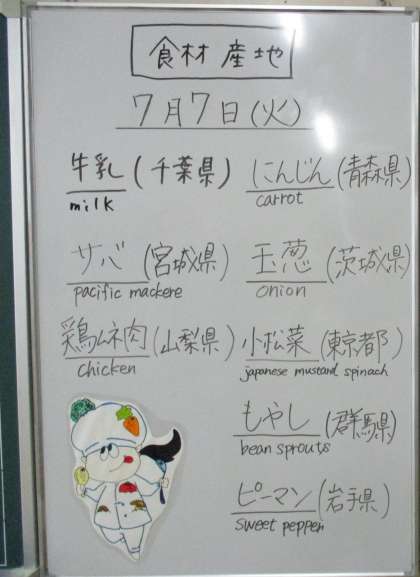 食材産地
7月7日(火)
牛乳(千葉県)
milk
サバ(宮城県)
pacific mackere
鶏ムネ肉(山梨県)
chicken
にんじん(青森県)
carrot
玉葱(茨城県)
onion
小松菜(東京都)
japanese mustard spinach
もやし(群馬県)
bean sprouts
ピーマン(岩手県)
sweet pepper